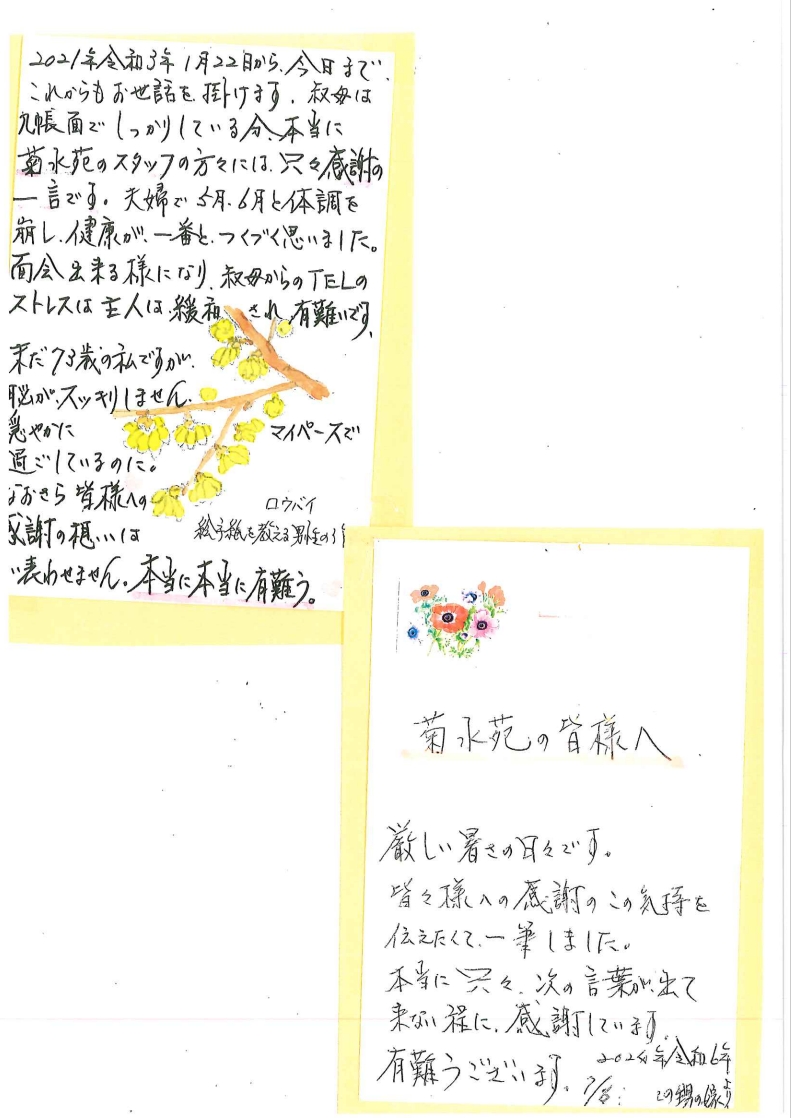 2021年令和3年1月22日から、今日まで、
これからもお世話を掛けます。叔母は
几帳面でしっかりしている分、本当に
菊水苑のスタッフの方々には、只々感謝の
一言です。夫婦で5月、6月と体調を
崩し、健康が、一番と、つくづく思いました。
面会出来る様になり、叔母からのTELの
ストレスは主人は、緩和され、有難いです。
未だ73歳の私ですが、
脳が、スッキリしません。
マイペースで
穏やかに
過ごしているのに。
なおさら皆様への
感謝の想いは
い表わせません。本当に本当に有難う。
ロウバイ
絵手紙を教える男性の
菊水苑の皆様へ
厳しい暑さの日々です。
皆々様への感謝のこの気持を
伝えたくて、一筆しました。
本当に只々、次の言葉が、出て
来ない程に、感謝しています。
有難うございます。
2024年令和6年
7/8
の甥の嫁より